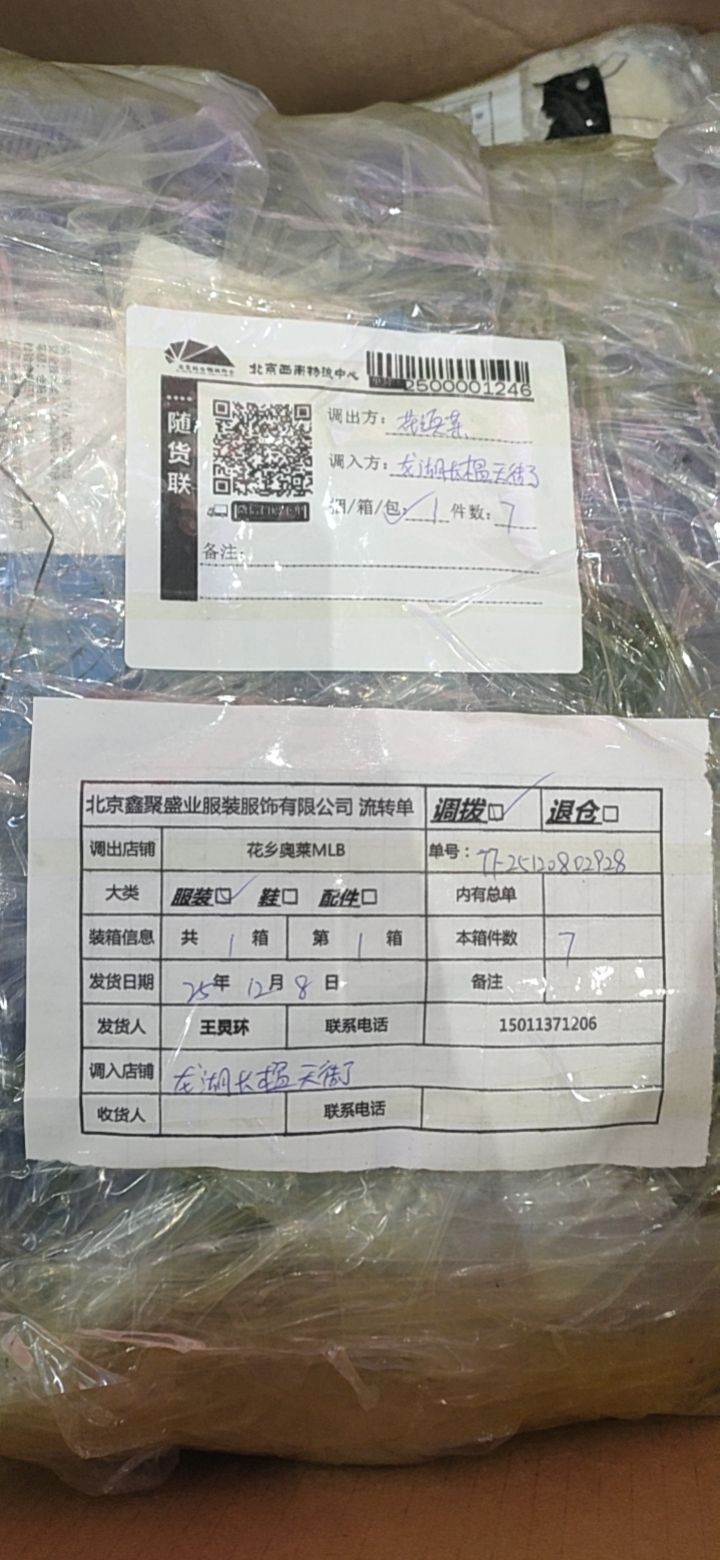 北京西南物流中心
2500001246
随货联
调出方：花乡奥莱
调入方：龙湖长楹天街
捆/箱/包：✓ 1 件数：7
备注：
北京鑫聚盛业服装服饰有限公司 流转单 调拨☑ 退仓□
调出店铺 花乡奥莱MLB 单号：77-25120802928
大类 服装☑ 鞋□ 配件□ 内有总单
装箱信息 共 1 箱 第 1 箱 本箱件数 7
发货日期 25年 12月 8日 备注
发货人 王炅环 联系电话 15011371206
调入店铺 龙湖长楹天街
收货人 联系电话